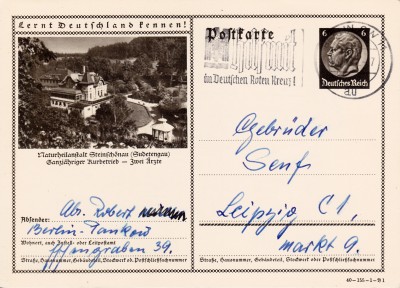 Lernt Deutschland kennen!
Naturheilanstalt Steinschönau (Sudetengau)
Ganzjähriger Kurbetrieb — Zwei Ärzte
Abs. Robert
Absender:
Berlin-Pankow
Wohnort, auch Zustell- oder Leitpostamt
39.
Straße, Hausnummer, Gebäudeteil, Stockwerk od. Postschließfachnummer
Postkarte
im Deutschen Roten Kreuz!
6 6
Deutsches Reich
Gebrüder
Senf
Leipzig C1,
markt 9.
Straße, Hausnummer, Gebäudeteil, Stockwerk od. Postschließfachnummer
40-155-1-B1